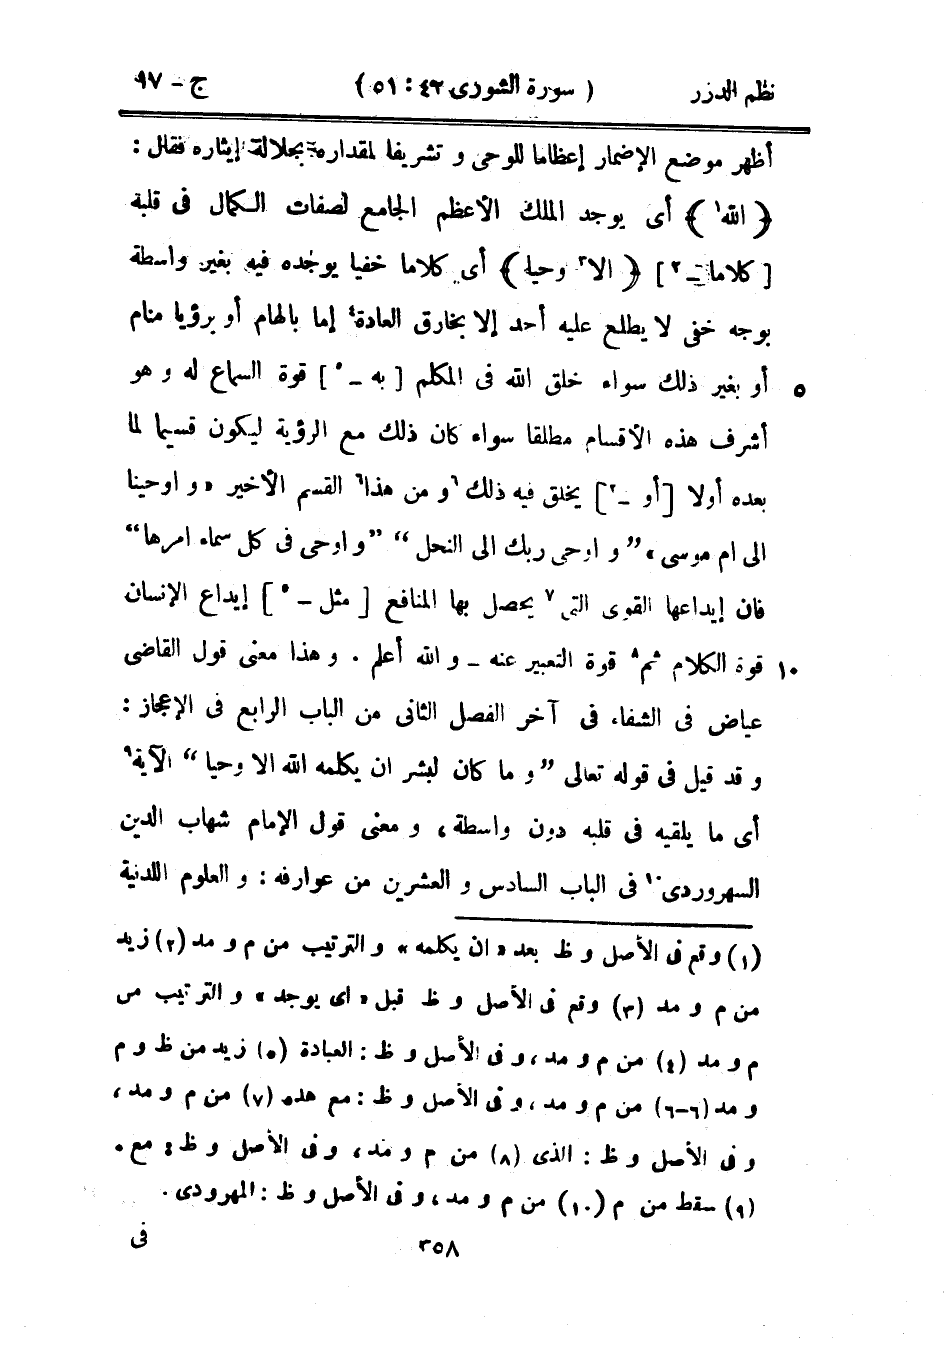 نظم الدرر ( سورة الشورى ٤٢ : ٥١ ) ج – ١٧
أظهر موضع الإضمار إعظاما للوحى و تشريفا لمقداره بجلالة إيثاره فقال :
﴿ الله١ ﴾ أى يوجد الملك الأعظم الجامع لصفات الكمال فى قلبه
[ كلاما – ٢ ] ﴿ الا٣ وحيا ﴾ أى كلاما خفيا يوجده فيه بغير واسطة
بوجه خفى لا يطلع عليه أحد إلا بخارق العادة٤ إما بالهام أو برؤيا منام
٥ أو بغير ذلك سواء خلق الله فى المكلم [ به – ٥ ] قوة السماع له و هو
أشرف هذه الأقسام مطلقا سواء كان ذلك مع الرؤية ليكون قسيما لما
بعده أولا [ أو – ٢ ] يخلق فيه ذلك ٦ و من هذا٦ القسم الأخير « و اوحينا
الى ام موسى » ” و اوحى ربك الى النحل “ ” و اوحى فى كل سماء امرها “
فان إيداعها القوى التى ٧ يحصل بها المنافع [ مثل – ٥ ] إيداع الإنسان
١٠ قوة الكلام ثم٨ قوة التعبير عنه – و الله أعلم . و هذا معنى قول القاضى
عياض فى الشفاء فى آخر الفصل الثانى من الباب الرابع فى الإعجاز :
و قد قيل فى قوله تعالى ” و ما كان لبشر ان يكلمه الله الا وحيا “ الآية٩
أى ما يلقيه فى قلبه دون واسطة ، و معنى قول الإمام شهاب الدين
السهروردى١٠ فى الباب السادس و العشرين من عوارفه : و العلوم اللدنية
(١) وقع فى الأصل و ظ بعد « ان يكلمه » و الترتيب من م و مد (٢) زيد
من م و مد (٣) وقع فى الأصل و ظ قبل « اى يوجد » و الترتيب من
م و مد (٤) من م و مد ، و فى الأصل و ظ : العبادة (٥) زيد من ظ و م
و مد (٦-٦) من م و مد ، و فى الأصل و ظ : مع هذه (٧) من م و مد ،
و فى الأصل و ظ : الذى (٨) من م و مد ، و فى الأصل و ظ : مع .
(٩) سقط من م (١٠) من م و مد ، و فى الأصل و ظ : المهرودى .
٣٥٨ فى